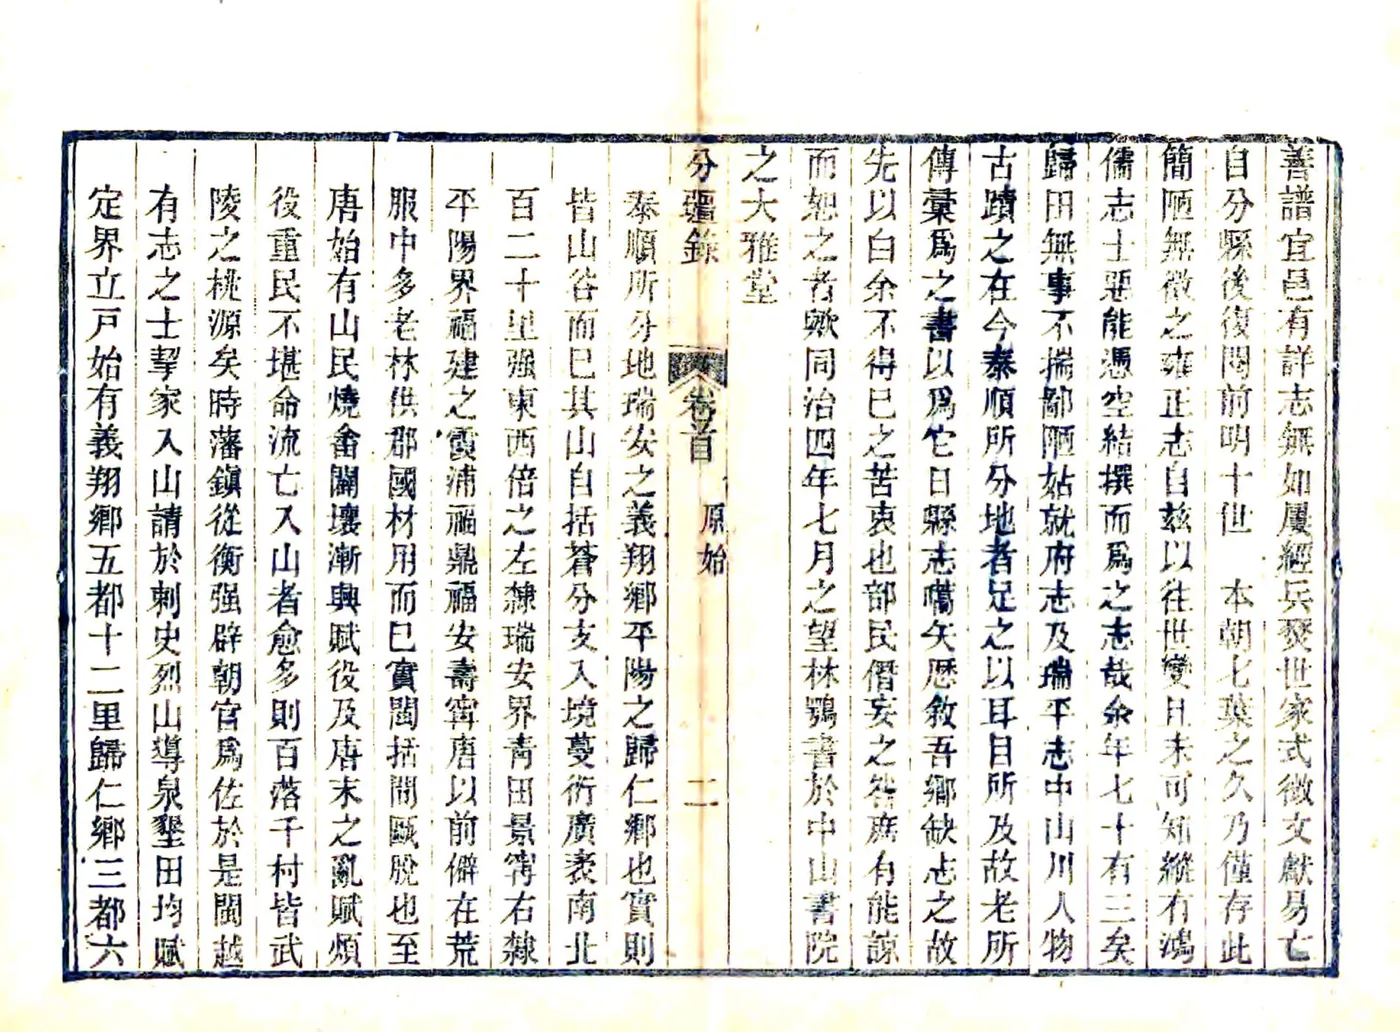 善譜宜邑有詳志無如屢經兵燹世家式微文獻易亡
自分縣後復閱前明十世　本朝七葉之久乃僅存此
簡陋無徵之雍正志自茲以往世變且未可知縱有鴻
儒志士惡能憑空結撰而爲之志哉余年七十有三矣
歸田無事不揣鄙陋姑就府志及瑞平志中山川人物
古蹟之在今泰順所分地者足之以耳目所及故老所
傳彙爲之書以爲它日縣志嚆矢歷敘吾鄉缺志之故
先以白余不得已之苦衷也部民僭妄之咎庶有能諒
而恕之者歟同治四年七月之望林鶚書於中山書院
之大雅堂
分疆錄　卷首　原始　二
泰順所分地瑞安之義翔鄉平陽之歸仁鄉也實則
皆山谷而已其山自括蒼分支入境蔓衍廣袤南北
百二十里强東西倍之左隸瑞安界青田景甯右隸
平陽界福建之霞浦福鼎福安壽甯唐以前僻在荒
服中多老林供郡國材用而已實閩括間甌脫也至
唐始有山民燒畬闢壤漸興賦役及唐末之亂賦煩
役重民不堪命流亡入山者愈多則百落千村皆武
陵之桃源矣時藩鎮從衡强辟朝官爲佐於是閩越
有志之士挈家入山請於刺史烈山導泉墾田均賦
定界立戸始有義翔鄉五都十二里歸仁鄉三都六